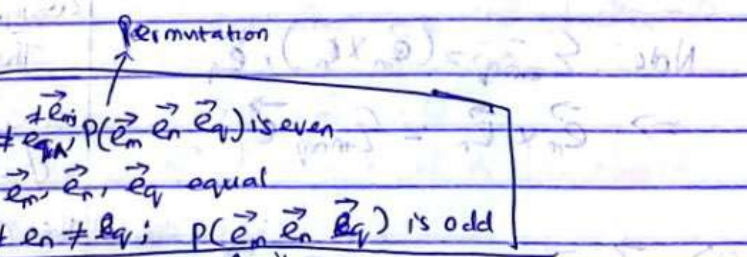 Permutation
≠ e⃗q, P(e⃗m e⃗n e⃗q) is even
e⃗m, e⃗n, e⃗q equal
≠ en ≠ eq; P(e⃗m e⃗n e⃗q) is odd